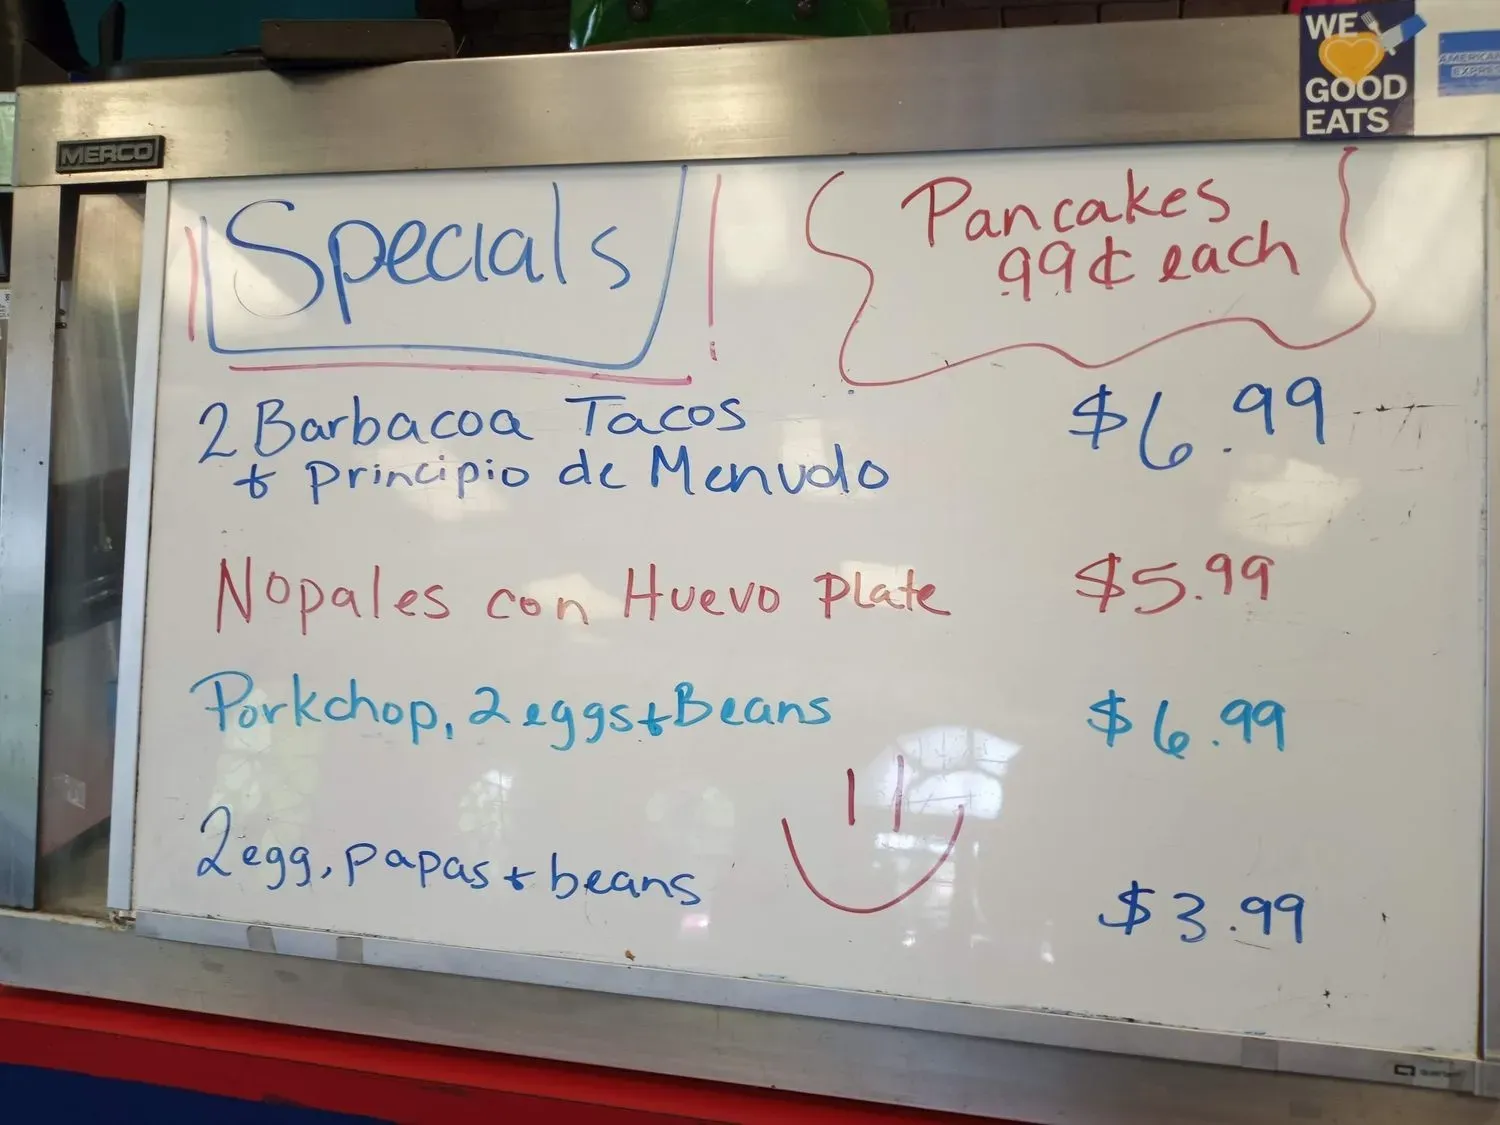 WE
GOOD
EATS
AMERICAN
EXPRESS
MERCO
Specials
Pancakes
.99¢ each
2 Barbacoa Tacos $6.99
+ Principio de Menudo
Nopales con Huevo Plate $5.99
Porkchop, 2 eggs + Beans $6.99
2 egg, papas + beans $3.99